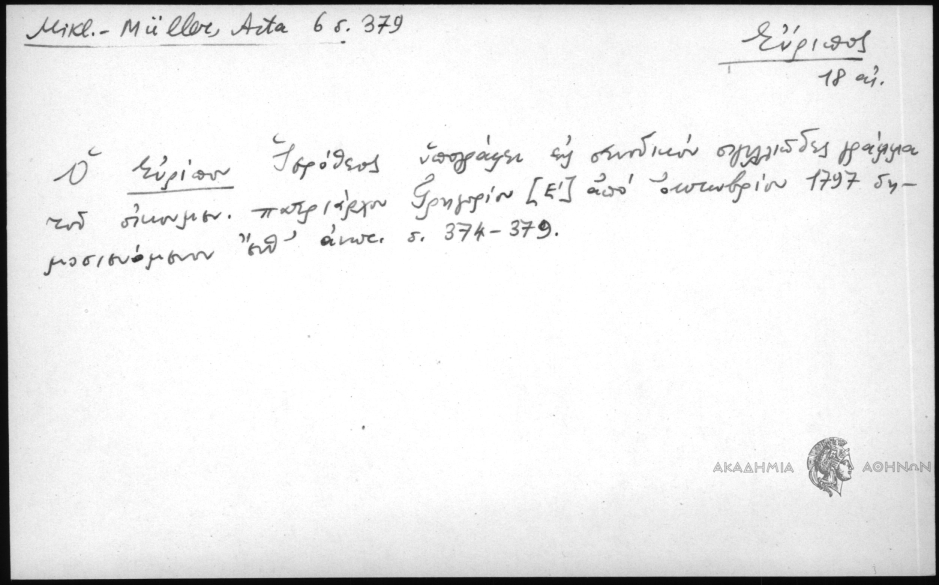 Mikl.- Müller, Acta 6 σ. 379
Εὔριπος
18 αἰ.
Ὁ Εὐρίπου Ἱερόθεος ὑπογράφει εἰς συνοδικόν σιγιλλιῶδες γράμμα
τοῦ οἰκουμεν. πατριάρχου Γρηγορίου [Ε'] ἀπό ὀκτωβρίου 1797 δη-
μοσιευόμενον αὐτ. σ. 374-379.
ΑΚΑΔΗΜΙΑ ΑΘΗΝΩΝ